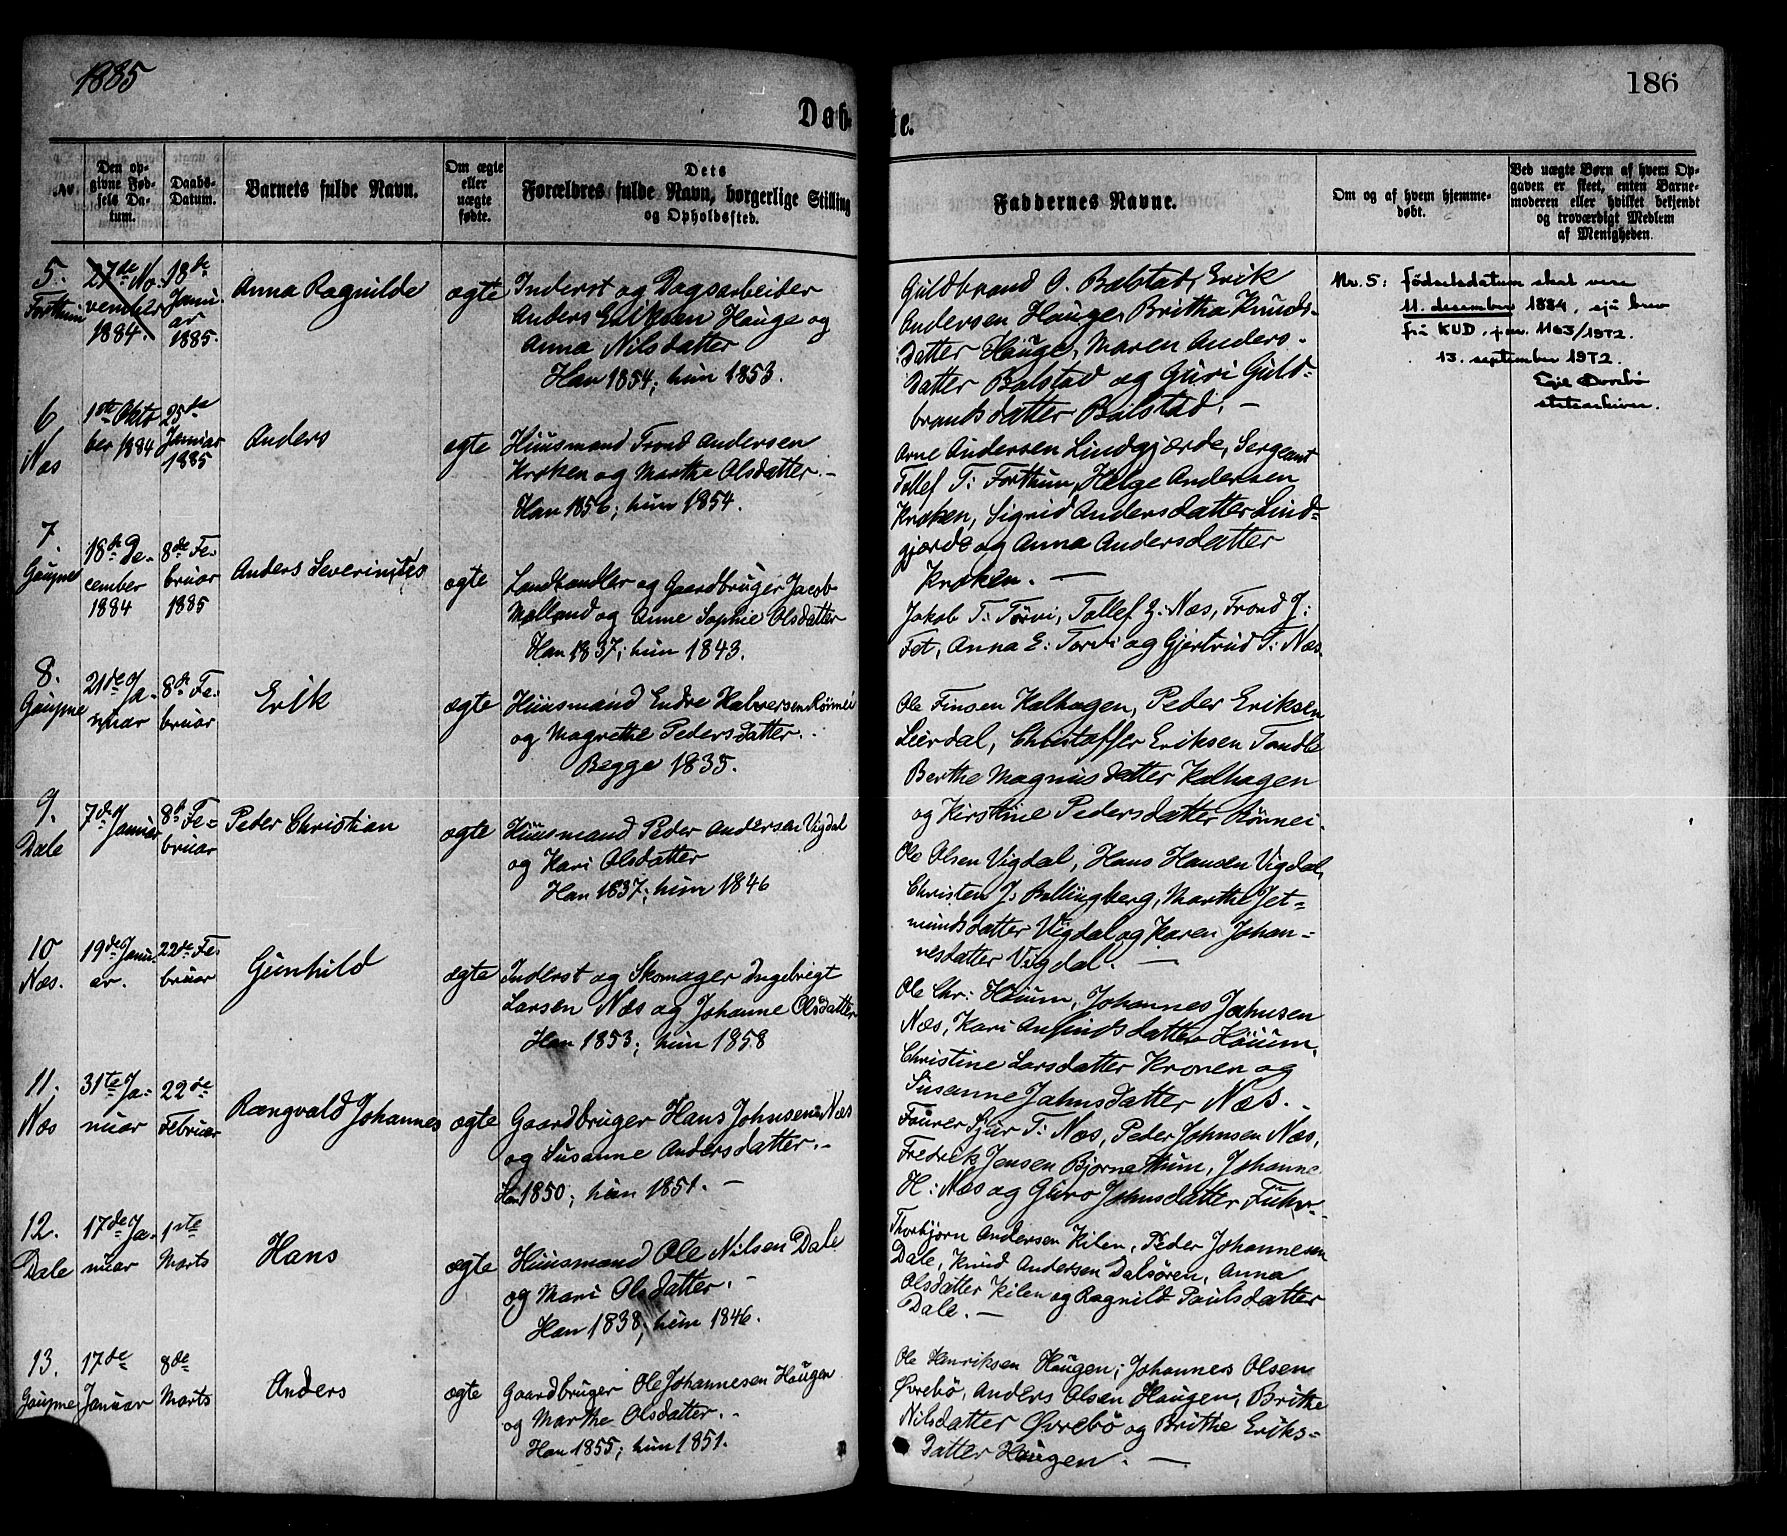 1885
186
Døbte.
Nr.
Den op-
givne Fød-
sels Da-
tum.
Daabs-
Datum.
Barnets fulde Navn.
Om ægte
eller
uægte
fødte.
Dets
Forældres fulde Navn, borgerlige Stilling
og Opholdssted.
Faddernes Navne.
Om og af hvem hjemme-
døbt.
Ved uægte Børn af hvem Op-
gaven er skeet, enten Barne-
moderen eller hvilket bekjendt
og troværdigt Medlem
af Menigheden.
5.
Forthun
27de No-
vember
1884.
18de
Janu-
ar
1885.
Anna Ragnilde
ægte
Inderst og Dagsarbeider
Anders Eriksen Hauge og
Anna Nilsdatter
Han 1854; hun 1853.
Guldbrand O. Bolstad, Erik
Andersen Hauge, Britha Knuds-
datter Hauge, Maren Anders-
datter Bolstad og Guri Guld-
brandsdatter Bolstad. –
Nr. 5: fødselsdatum skal vere
11. desember 1884, sjå brev
frå KUD, j.nr. 1163/1972.
13. september 1972.
Egil
statsarkivar.
6
Næs
1ste Okto
ber 1884
25de
Januar
1885
Anders
ægte
Huusmand Trond Andersen
Kroken og Marthe Olsdatter. –
Han 1856; hun 1854.
Arne Andersen Lindgjærde, Sergeant
Tollef T: Forthun, Helge Andersen
Kroken, Sigrid Andersdatter Lind-
gjærde og Anna Andersdatter
Kroken. –
7.
Gaupne
18de De-
cember
1884
8de Fe-
bruar
1885
Anders Severin
ægte
Landhandler og Gaardbruger Jacob
Molland og Anne Sophie Olsdatter
Han 1837; hun 1843.
Jakob T: Torvi, Tollef J: Næs, Trond J:
Fet, Anna E: Torvi og Gjertrud T: Næs.
8.
Gaupne
21de Ja-
nuar
8de Fe-
bruar
Erik
ægte
Huusmand Endre Halvorsen Rønnei
og Magrethe Pedersdatter.
Begge 1835.
Ole Finsen Kalhagen, Peder Eriksen
Leirdal, Christoffer Eriksen Tandle
Berthe Magnusdatter Kalhagen
og Kirstine Pedersdatter Rønnei.
9.
Dale
7de Januar
8de Fe-
bruar
Peder Christian
ægte
Huusmand Peder Andersen Vigdal
og Kari Olsdatter
Han 1837; hun 1846
Ole Olsen Vigdal, Hans Hansen Vigdal,
Christen J: Bollingberg, Marthe Jet-
mundsdatter Vigdal og Karen Johan-
nesdatter Vigdal. –
10
Næs.
19de Janu-
ar.
22de Fe-
bruar
Gunhild
ægte
Inderst og Skomager Ingebrigt
Larsen Næs og Johanne Olsdatter
Han 1853; hun 1858
Ole Chr: Høium, Johannes Johnsen
Næs, Kari Anfindsdatter Høium,
Christine Larsdatter Kronen og
Susanne Johnsdatter Næs. –
11.
Næs
31te Ja-
nuar
22de
Februar
Rangvald Johannes
ægte
Gaardbruger Hans Johnsen Næs
og Susanne Andersdatter. –
Han 1850; hun 1851. –
Fourer Sjur T: Næs, Peder Johnsen Næs,
Fredrik Jensen Bjørnethun, Johanne
H: Næs og Guro Johnsdatter Fuhr.
12.
Dale
17de Ja-
nuar
1ste
Marts
Hans
ægte
Huusmand Ole Nilsen Dale
og Mari Olsdatter. –
Han 1838; hun 1846.
Thorbjørn Andersen Kilen, Peder Johannesen
Dale, Knud Andersen Dalsøren, Anna
Olsdatter Kilen og Ragnild Paulsdatter
Dale. –
13.
Gaupne
17de
Januar
8de
Marts
Anders
ægte
Gaardbruger Ole Johannesen Haugen
og Marthe Olsdatter. –
Han 1855; hun 1851.
Ole Henriksen Haugen, Johannes Olsen
Øvrebø, Anders Olsen Haugen, Brithe
Nilsdatter Øvrebø og Brithe Eriks-
datter Haugen. –